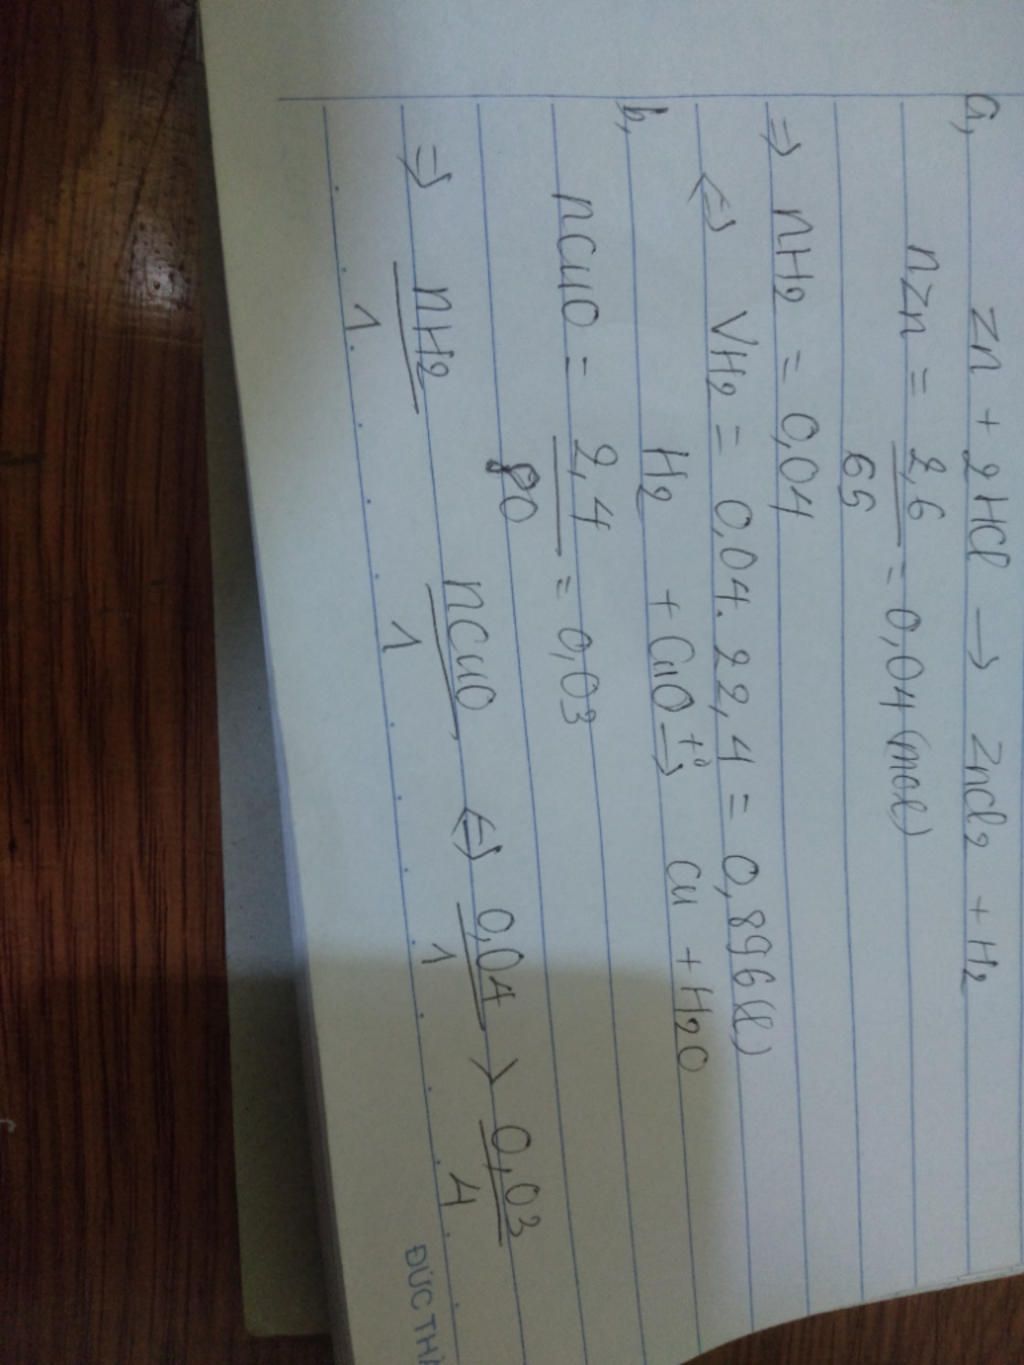 a, Zn + 2HCl → ZnCl2 + H2
nZn = 2,6 / 65 = 0,04 (mol)
⇒ nH2 = 0,04
⇔ VH2 = 0,04.22,4 = 0,896(l)
b, H2 + CuO t°→ Cu + H2O
nCuO = 2,4 / 80 = 0,03
⇒ nH2 / 1 nCuO / 1 ⇔ 0,04 / 1 > 0,03 / 1
ĐỨC TH